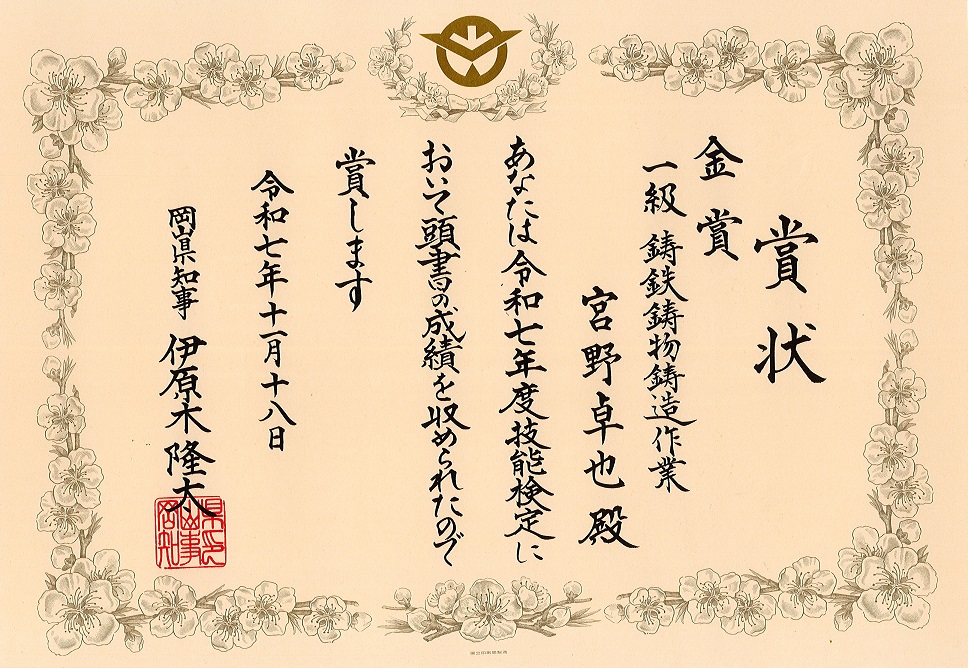 賞状
金賞
一級 鋳鉄鋳物鋳造作業
宮野卓也 殿
あなたは令和七年度技能検定に
おいて頭書の成績を収められたので
賞します
令和七年十一月十八日
岡山県知事 伊原木隆太